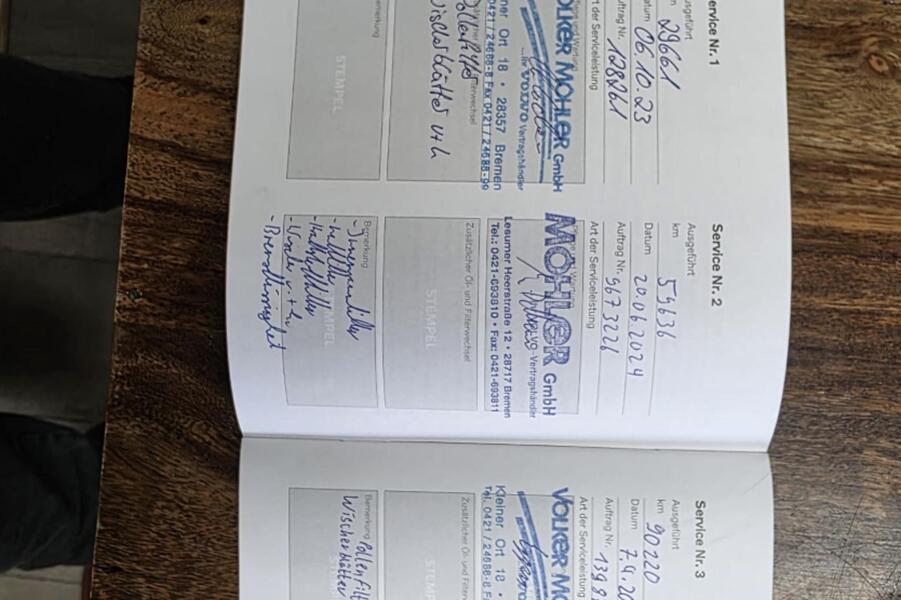 Service Nr. 1
Ausgeführt
km 29661
Datum 06.10.23
Auftrag Nr. 128261
Art der Serviceleistung
VOLKER MOHLER GmbH
...Ihr VOLVO Vertragshändler
Kleiner Ort 18 • 28357 Bremen
0421/24688-8 Fax 0421/24688-90
Pollenfilter
Wischerblätter v+h
Bemerkung
STEMPEL
Service Nr. 2
Ausgeführt
km 59636
Datum 20.06.2024
Auftrag Nr. 9673226
Art der Serviceleistung
MOHLER GmbH
VOLVO-Vertragshändler
Lesumer Heerstraße 12 • 28717 Bremen
Tel.: 0421-693810 • Fax: 0421-693811
Zusätzlicher Öl- und Filterwechsel
STEMPEL
Bemerkung
- Innenraumfilter
- Luftfilter
- Kraftstofffilter
- Wischer v.+h.
- Bremsflüssigkeit
STEMPEL
Service Nr. 3
Ausgeführt
km 90220
Datum 7.4.20
Auftrag Nr. 1398
Art der Serviceleistung
VOLKER MO
Kleiner Ort 18
Tel. 0421 / 24688-8 F
Zusätzlicher Öl- und Filterwechsel
STEM
Bemerkung Pollenfilt
Wischerblätter